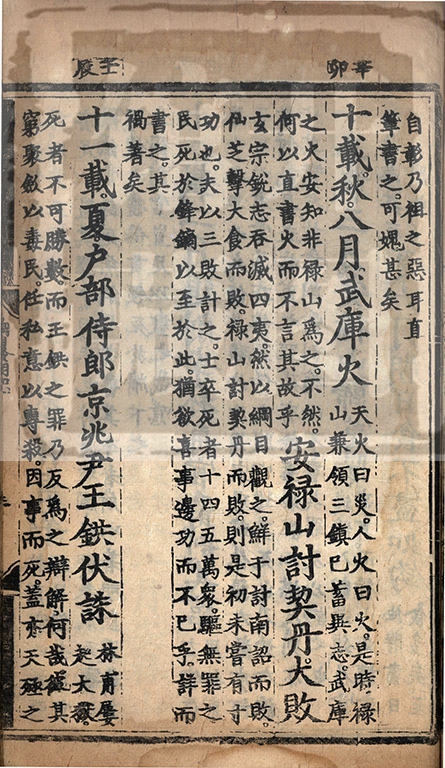 辛卯
壬辰
自彰乃祖之惡耳直
筆書之可媿甚矣
十載秋八月武庫火
天火曰災人火曰火是時禄
山兼領三鎮已蓄異志武庫
之火安知非禄山爲之不然
何以直書火而不言其故乎
安禄山討契丹大敗
玄宗銳志吞滅四夷然以綱目觀之鮮于討南詔而敗
仙芝擊大食而敗禄山討契丹而敗則是初未嘗有寸
功也夫以三敗計之士卒死者十四五萬衆驅無罪之
民死於鋒鏑以至於此猶欲喜事邊功而不已乎詳而
書之其
禍著矣
十一載夏戶部侍郎京兆尹王鉷伏誅
林甫屢
起大獄
死者不可勝數而王鉷之罪乃反爲之辯解何哉蓋其
窮聚斂以毒民任私意以專殺因事而死蓋亦天殛之